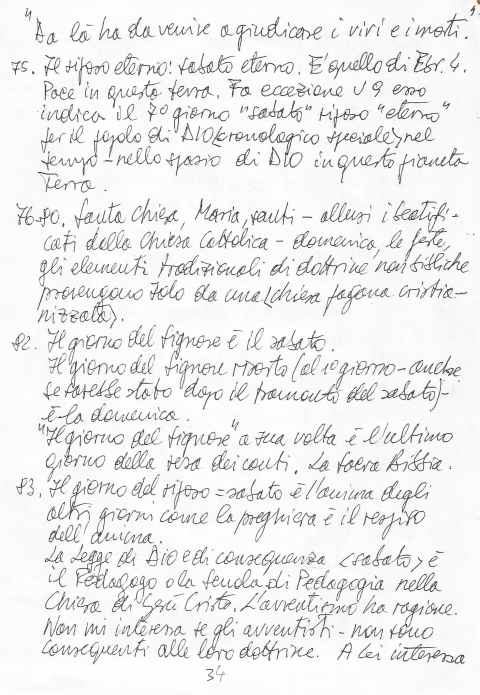 "Da là ha da venire a giudicare i vivi e i morti."
75. Il riposo eterno: sabato eterno. È quello di Ebr. 4.
Pace in questa terra. Fa eccezione v 9 esso
indica il 7º giorno "sabato" riposo "eterno"
per il popolo di DIO <cronologico speciale> nel
tempo - nello spazio di DIO in questo pianeta
Terra.
76-80. Santa Chiesa, Maria, santi - allusi i beatifi-
cati dalla Chiesa Cattolica - domenica, le feste,
gli elementi tradizionali di dottrine non bibliche
provengono solo da una <chiesa pagana cristia-
nizzata>.
82. Il giorno del Signore è il sabato.
Il giorno del Signore risorto (al 1º giorno - anche
se sarebbe stato dopo il tramonto del sabato) -
è la domenica.
"Il giorno del Signore" a sua volta è l'ultimo
giorno della resa dei conti. La Sacra Bibbia.
83. Il giorno del riposo = sabato è l'anima degli
altri giorni come la preghiera è il respiro
dell'anima.
La Legge di Dio e di conseguenza <sabato> è
il Pedagogo o la scuola di Pedagogia nella
Chiesa di Gesù Cristo. L'avventismo ha ragione.
Non mi interessa se gli avventisti - non sono
conseguenti alle loro dottrine. A Lei interessa
34